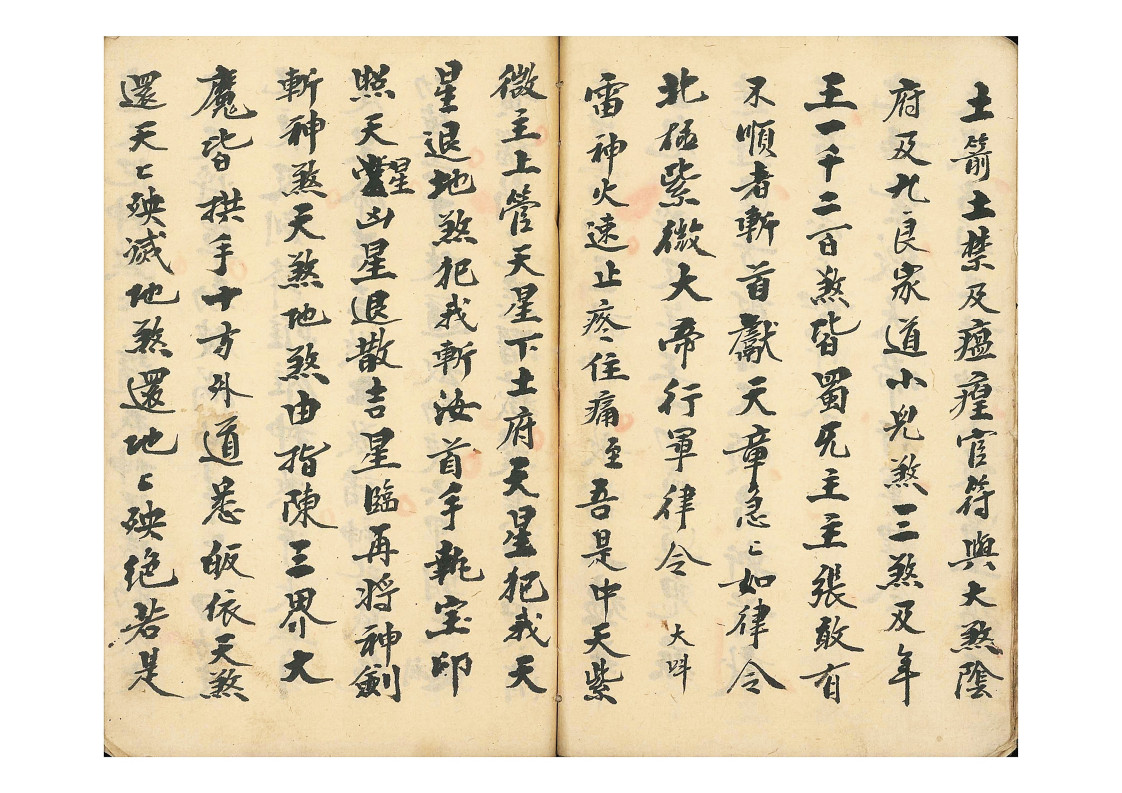 土箭土禁及瘟瘟官符與大煞陰
府及九良家道小児煞三煞及年
王一千二百煞皆蜀死主主張敢有
不順者斬首獻天章急〻如律令
北極紫微大帝行軍律令 大叫
雷神火速止疼住痛至吾是中天紫
微主上管天星下土府天星犯我天
星退地煞犯我斬汝首手執宝印
照天星凶星退散吉星臨再将神劍
斬神煞天煞地煞由指陳三界大
魔皆拱手十方外道悉皈依天煞
還天〻殃滅地煞還地〻殃絶若是